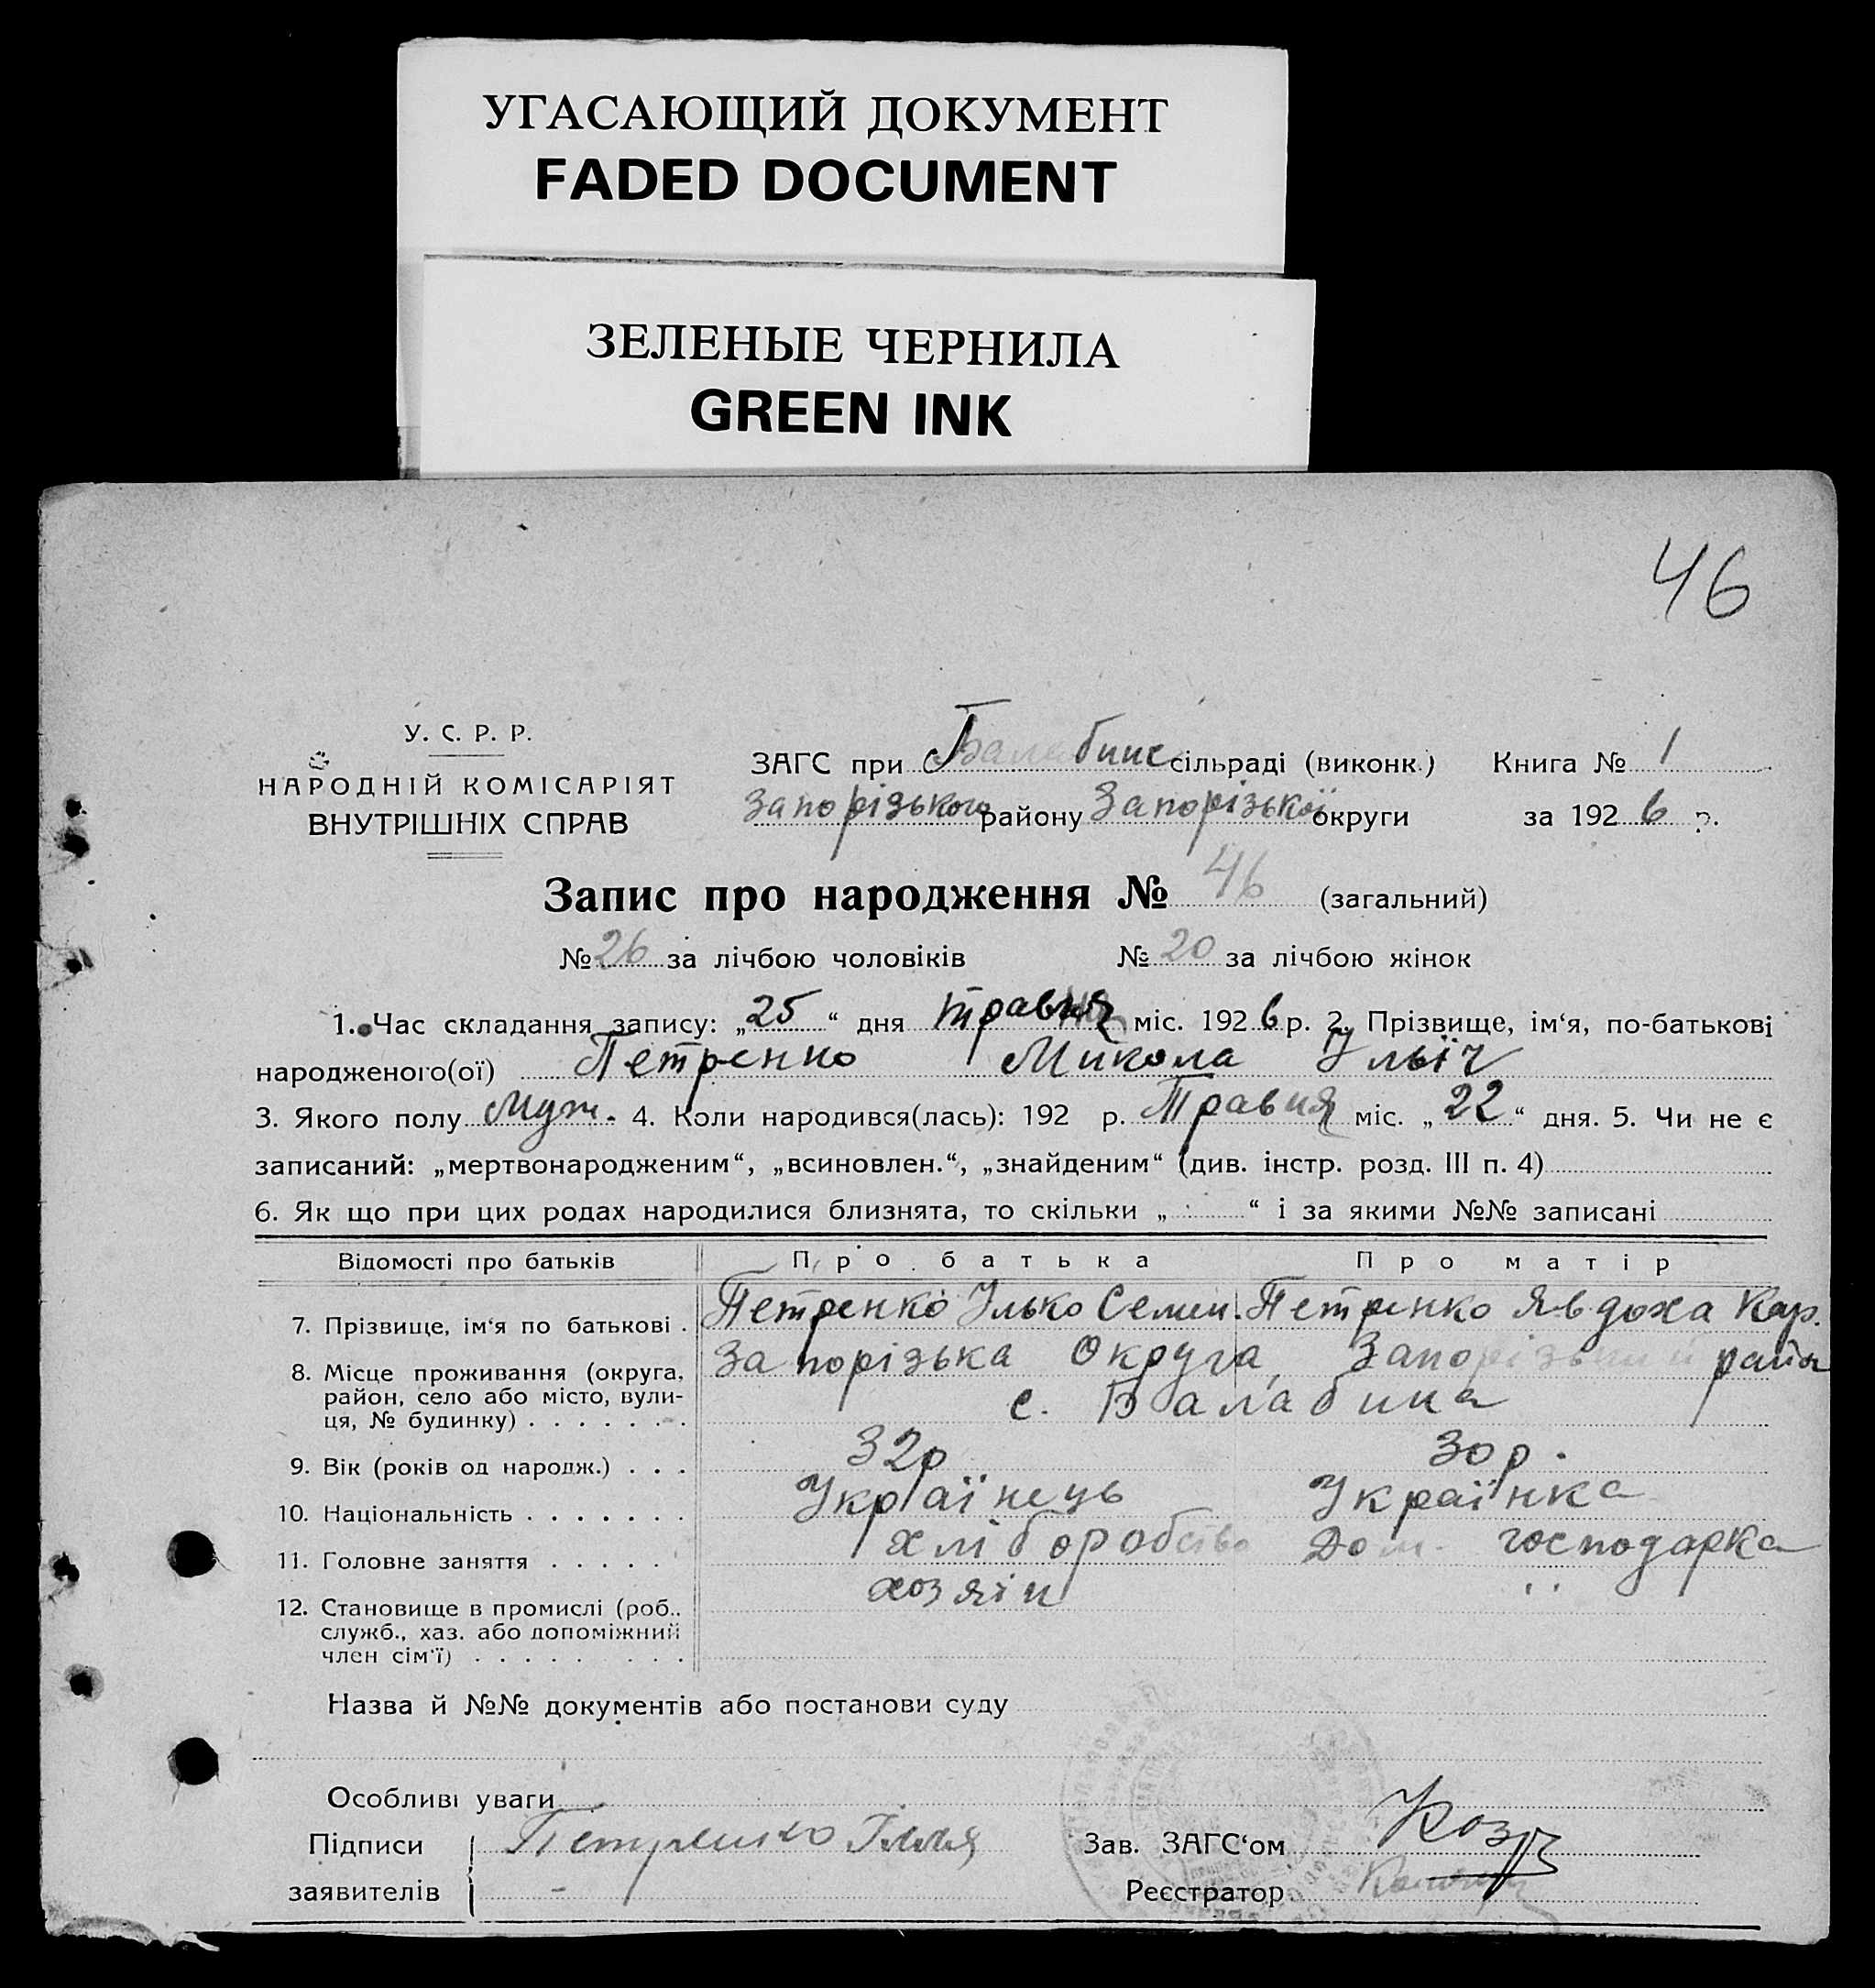 УГАСАЮЩИЙ ДОКУМЕНТ
FADED DOCUMENT
ЗЕЛЕНЫЕ ЧЕРНИЛА
GREEN INK
46
У. С. Р. Р.
НАРОДНІЙ КОМІСАРІЯТ
ВНУТРІШНІХ СПРАВ
ЗАГС при Балабинс сільраді (виконк.) Книга № 1
Запорізького району Запорізької округи за 1926 р.
Запис про народження № 46 (загальний)
№ 26 за лічбою чоловіків № 20 за лічбою жінок
1. Час складання запису: „25“ дня травня міс. 1926 р. 2. Прізвище, ім‘я, по-батькові
народженого(ої) Петренко Микола Ульїч
3. Якого полу Муж. 4. Коли народився(лась): 192 р. Травня міс. „22“ дня. 5. Чи не є
записаний: „мертвонародженим“, „всиновлен.“, „знайденим“ (див. інстр. розд. III п. 4)
6. Як що при цих родах народилися близнята, то скільки „ “ і за якими №№ записані
Відомості про батьків Про батька Про матір
7. Прізвище, ім‘я по батькові . Петренко Улько Семен. Петренко Явдоха Кар.
8. Місце проживання (округа, Запорізька Округа, Запорізький район
район, село або місто, вули- с. Балабина
ця, № будинку) . . . . . . .
9. Вік (років од народж.) . . . 32р 30р.
10. Національність . . . . . . . Українець Українка
11. Головне заняття . . . . . хліборобство Дом. господарка
12. Становище в промислі (роб., хозяїн "
служб., хаз. або допоміжний
член сім‘ї) . . . . . . . . .
Назва й №№ документів або постанови суду
Особливі уваги
Підписи Петренко Ілля Зав. ЗАГС‘ом
заявителів Реєстратор